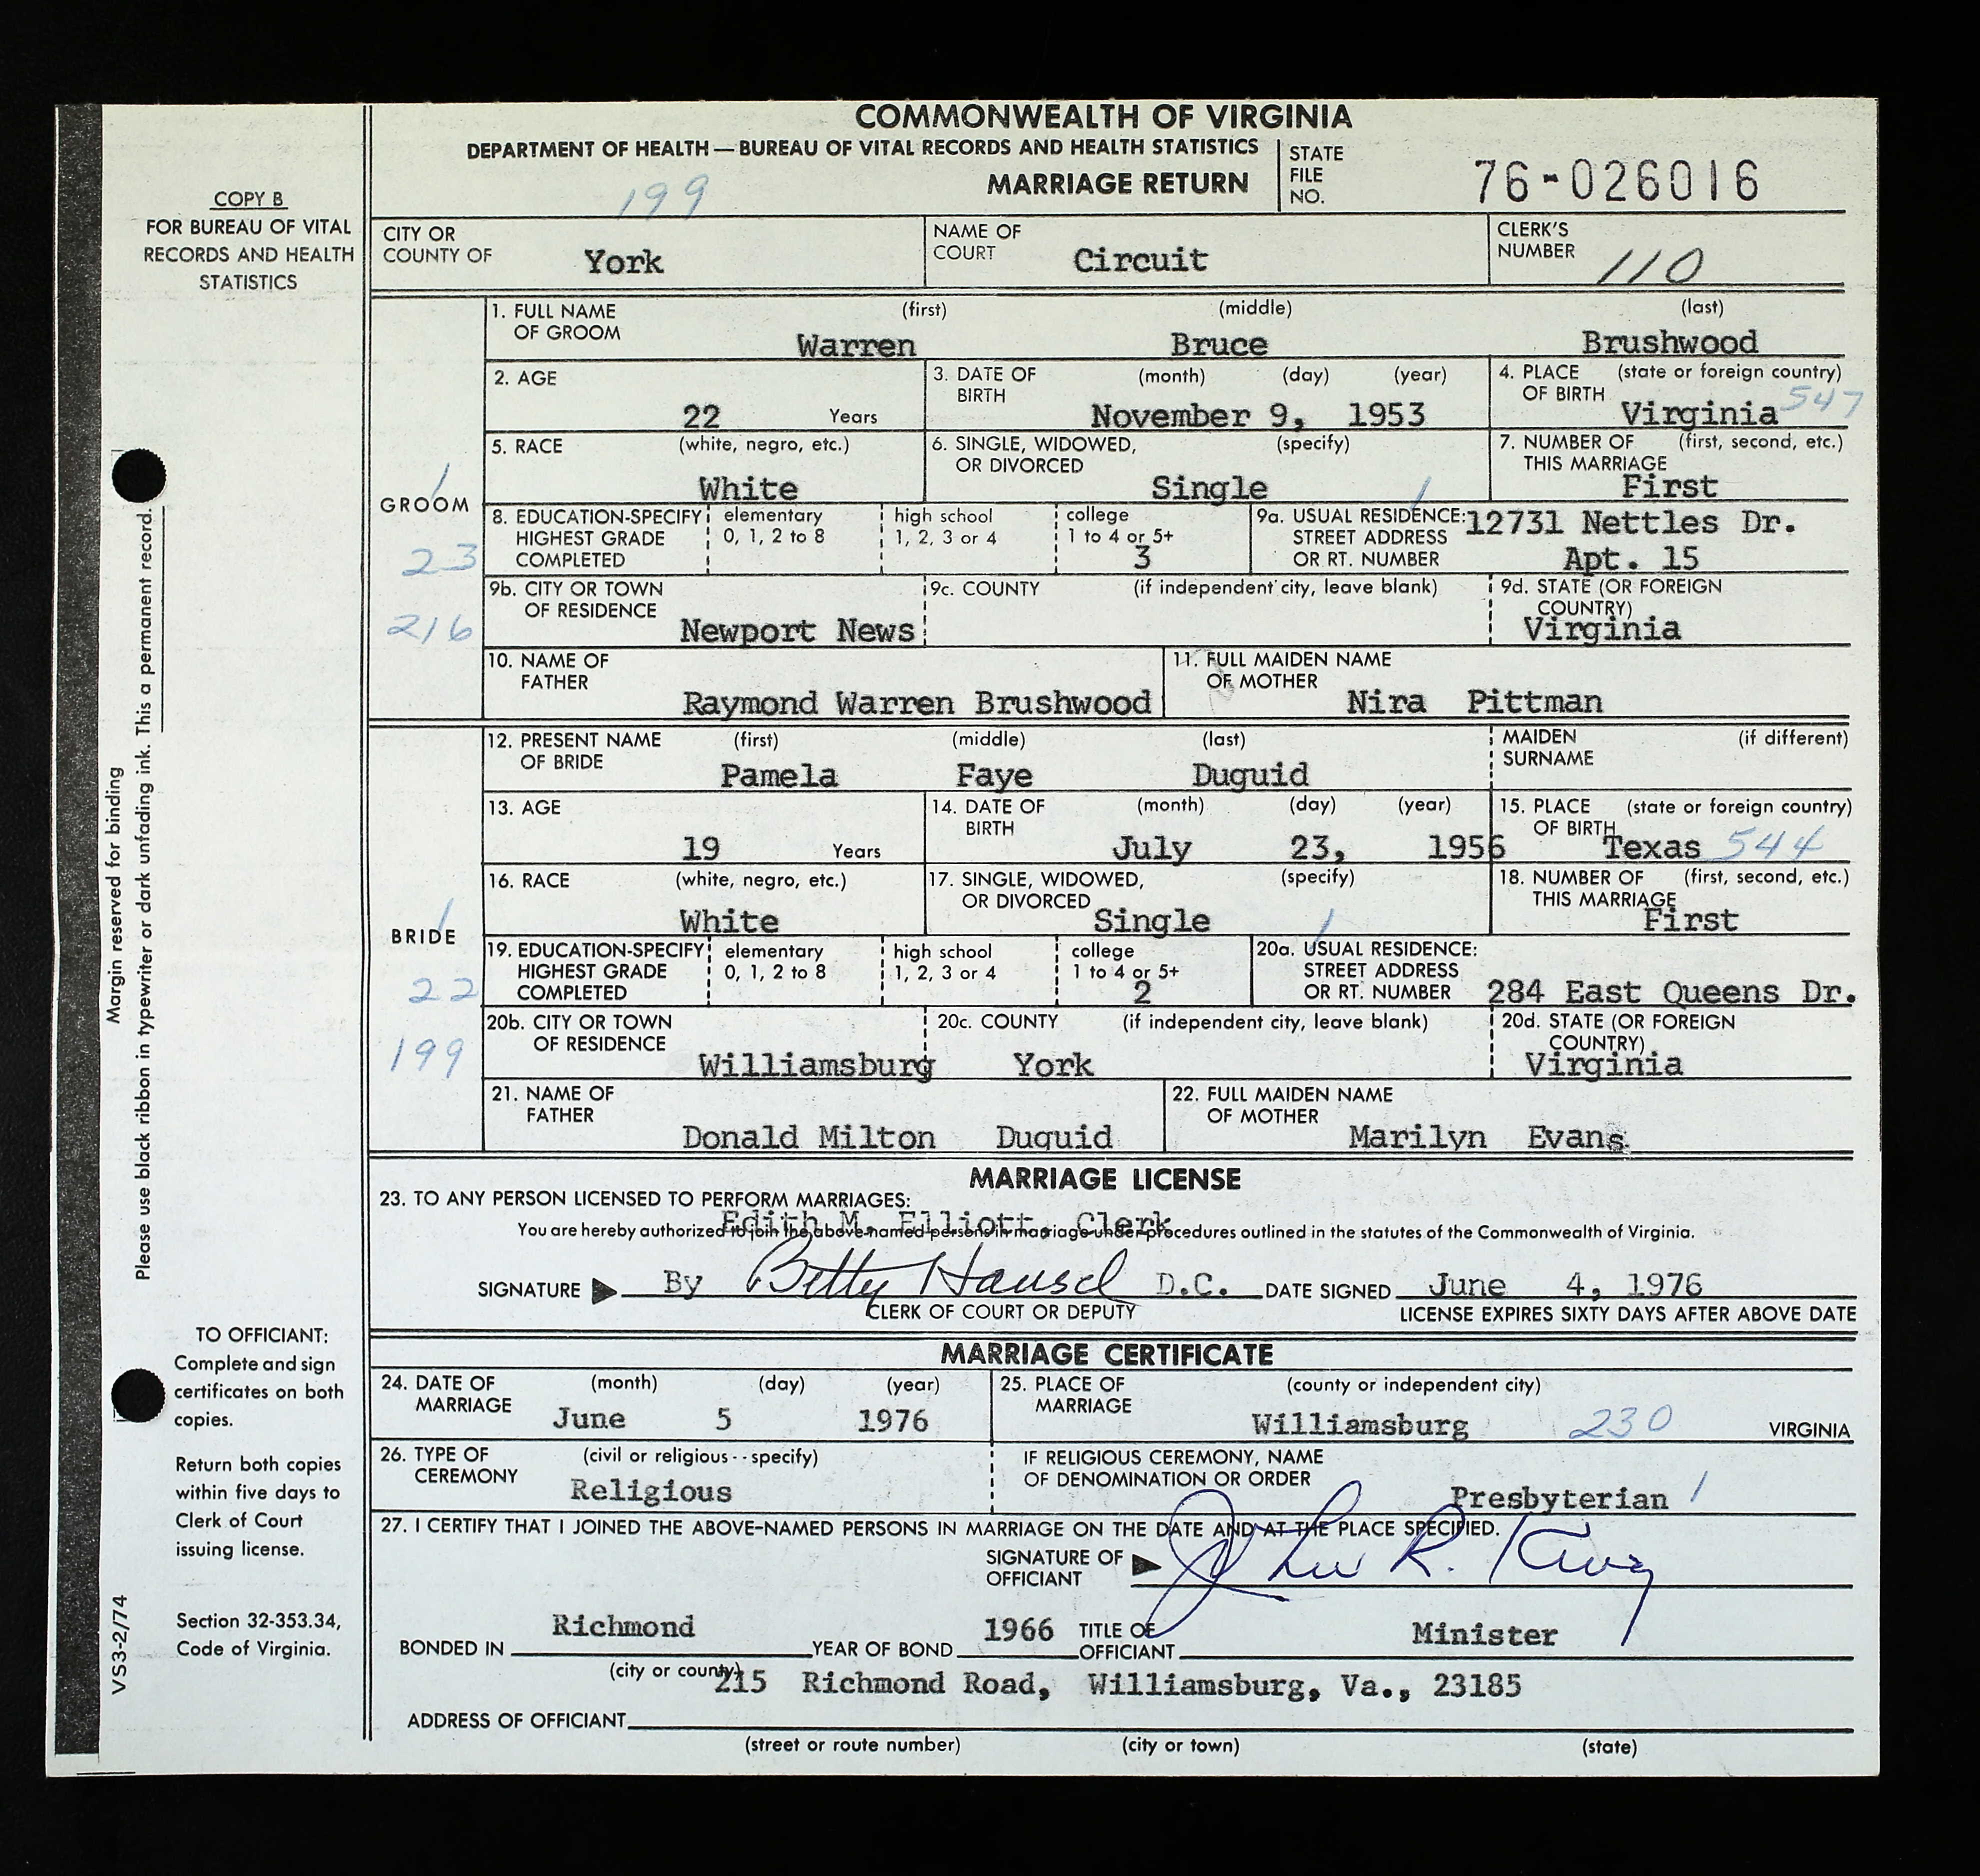 COMMONWEALTH OF VIRGINIA
DEPARTMENT OF HEALTH — BUREAU OF VITAL RECORDS AND HEALTH STATISTICS
199
MARRIAGE RETURN
STATE FILE NO. 76-026016
COPY B
FOR BUREAU OF VITAL
RECORDS AND HEALTH
STATISTICS
CITY OR COUNTY OF York
NAME OF COURT Circuit
CLERK'S NUMBER 110
GROOM
1
23
216
1. FULL NAME OF GROOM (first) (middle) (last)
Warren Bruce Brushwood
2. AGE 22 Years
3. DATE OF BIRTH (month) (day) (year)
November 9, 1953
4. PLACE OF BIRTH (state or foreign country)
Virginia 547
5. RACE (white, negro, etc.)
White
6. SINGLE, WIDOWED, OR DIVORCED (specify)
Single
7. NUMBER OF THIS MARRIAGE (first, second, etc.)
First
8. EDUCATION-SPECIFY HIGHEST GRADE COMPLETED
elementary 0, 1, 2 to 8
high school 1, 2, 3 or 4
college 1 to 4 or 5+
3
9a. USUAL RESIDENCE: STREET ADDRESS OR RT. NUMBER
1
12731 Nettles Dr.
Apt. 15
9b. CITY OR TOWN OF RESIDENCE
Newport News
9c. COUNTY (if independent city, leave blank)
9d. STATE (OR FOREIGN COUNTRY)
Virginia
10. NAME OF FATHER
Raymond Warren Brushwood
11. FULL MAIDEN NAME OF MOTHER
Nira Pittman
BRIDE
1
22
199
12. PRESENT NAME OF BRIDE (first) (middle) (last)
Pamela Faye Duguid
MAIDEN SURNAME (if different)
13. AGE 19 Years
14. DATE OF BIRTH (month) (day) (year)
July 23, 1956
15. PLACE OF BIRTH (state or foreign country)
Texas 544
16. RACE (white, negro, etc.)
White
17. SINGLE, WIDOWED, OR DIVORCED (specify)
Single
18. NUMBER OF THIS MARRIAGE (first, second, etc.)
First
19. EDUCATION-SPECIFY HIGHEST GRADE COMPLETED
elementary 0, 1, 2 to 8
high school 1, 2, 3 or 4
college 1 to 4 or 5+
2
20a. USUAL RESIDENCE: STREET ADDRESS OR RT. NUMBER
1
284 East Queens Dr.
20b. CITY OR TOWN OF RESIDENCE
Williamsburg
20c. COUNTY (if independent city, leave blank)
York
20d. STATE (OR FOREIGN COUNTRY)
Virginia
21. NAME OF FATHER
Donald Milton Duguid
22. FULL MAIDEN NAME OF MOTHER
Marilyn Evans
MARRIAGE LICENSE
23. TO ANY PERSON LICENSED TO PERFORM MARRIAGES:
Edith M. Elliott, Clerk
You are hereby authorized to join the above-named persons in marriage under procedures outlined in the statutes of the Commonwealth of Virginia.
SIGNATURE By Betty Hansel D.C. DATE SIGNED June 4, 1976
CLERK OF COURT OR DEPUTY
LICENSE EXPIRES SIXTY DAYS AFTER ABOVE DATE
MARRIAGE CERTIFICATE
24. DATE OF MARRIAGE (month) (day) (year)
June 5 1976
25. PLACE OF MARRIAGE (county or independent city)
Williamsburg 230 VIRGINIA
26. TYPE OF CEREMONY (civil or religious--specify)
Religious
IF RELIGIOUS CEREMONY, NAME OF DENOMINATION OR ORDER
Presbyterian 1
27. I CERTIFY THAT I JOINED THE ABOVE-NAMED PERSONS IN MARRIAGE ON THE DATE AND AT THE PLACE SPECIFIED.
SIGNATURE OF OFFICIANT
BONDED IN Richmond YEAR OF BOND 1966 TITLE OF OFFICIANT Minister
(city or county)
215 Richmond Road, Williamsburg, Va., 23185
ADDRESS OF OFFICIANT
(street or route number) (city or town) (state)
Margin reserved for binding
Please use black ribbon in typewriter or dark unfading ink. This a permanent record.
TO OFFICIANT:
Complete and sign
certificates on both
copies.
Return both copies
within five days to
Clerk of Court
issuing license.
Section 32-353.34,
Code of Virginia.
VS3-2/74